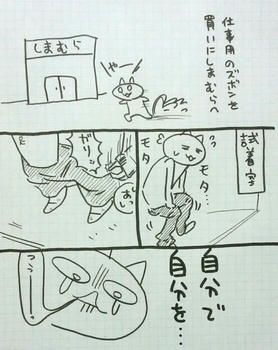 仕事用のズボンを
買いにしまむらへ
しまむら
やー
試着室
モタ
モタ…
がりっ
自分で
自分を…
っっー!